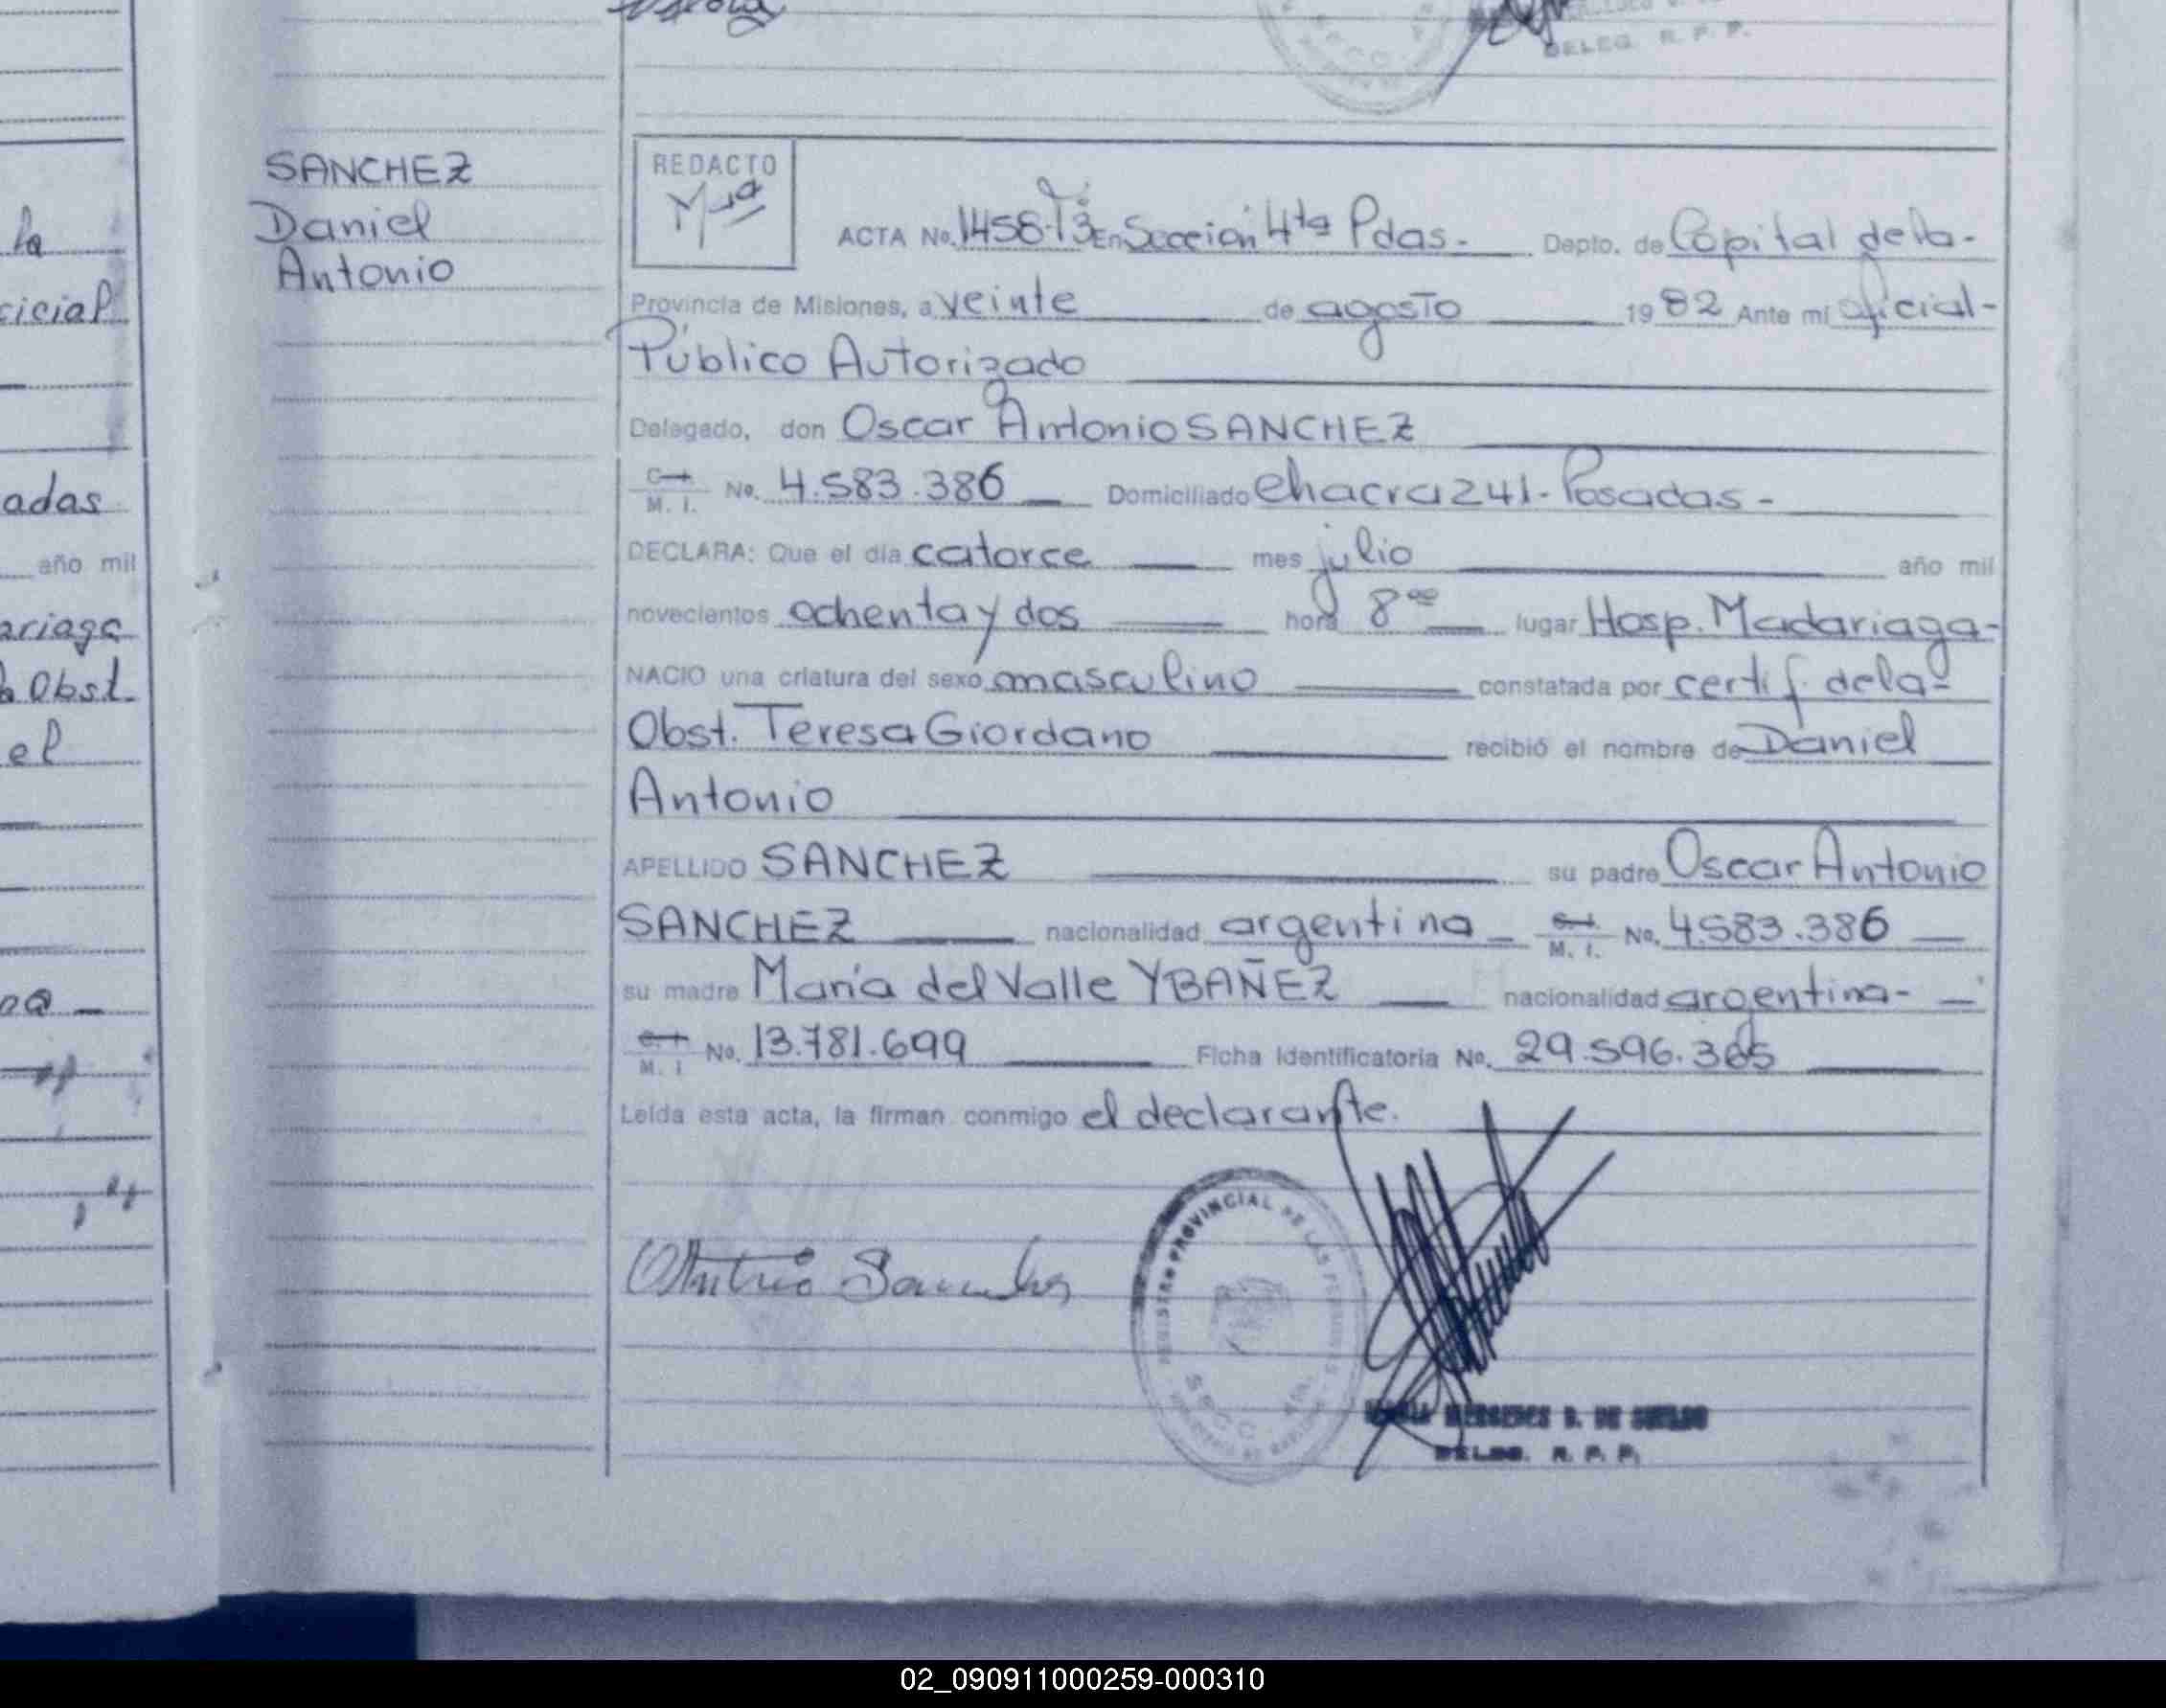 DELEG. R. P. P.
SANCHEZ
Daniel
Antonio
la
icial
adas
año mil
ariaga
Obst.
el
REDACTO
ACTA No. 1458 T3 En Sección 4ta Pdas. Depto. de Capital de la
Provincia de Misiones, a veinte de agosto 1982 Ante mi oficial
Público Autorizado
Delegado, don Oscar Antonio SANCHEZ
M. I. No. 4.583.386 Domiciliado Chacra 241 - Posadas -
DECLARA: Que el día catorce mes julio año mil
novecientos ochenta y dos hora 8 00 lugar Hosp. Madariaga -
NACIO una criatura del sexo masculino constatada por certif. de la
Obst. Teresa Giordano recibió el nombre de Daniel
Antonio
APELLIDO SANCHEZ su padre Oscar Antonio
SANCHEZ nacionalidad argentina M. I. No. 4.583.386
su madre María del Valle YBAÑEZ nacionalidad argentina -
M. I No. 13.781.699 Ficha Identificatoria No. 29.596.365
Leída esta acta, la firman conmigo el declarante.
REGISTRO PROVINCIAL DE LAS PERSONAS
MERCEDES B. DE
DELEG. R. P. P.
02_090911000259-000310